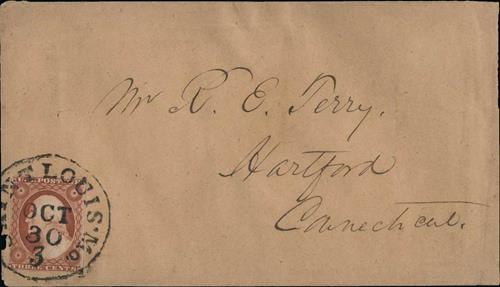 Mr R. E. Terry.
Hartford
Connecticut.
SAINT LOUIS Mo.
OCT
30
3
THREE CENTS